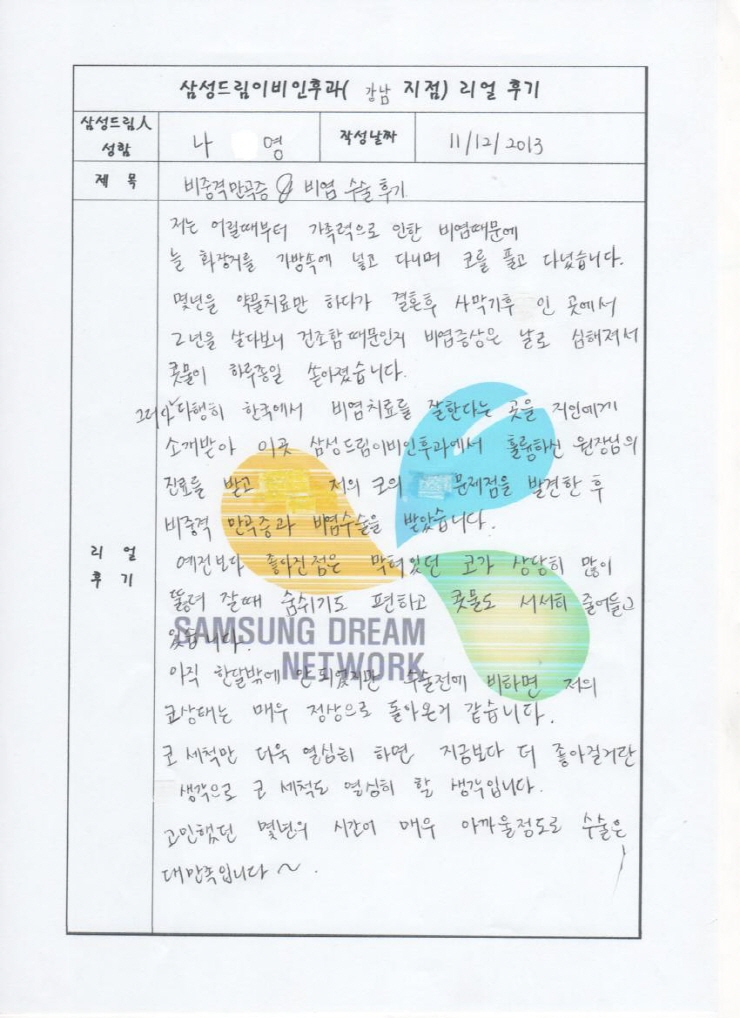 삼성드림이비인후과( 강남 지점) 리얼 후기
삼성드림人
성함
나 영
작성날짜
11/12/2013
제 목
비중격만곡증 & 비염 수술 후기
리 얼
후 기
저는 어릴때부터 가족력으로 인한 비염때문에
늘 화장지를 가방속에 넣고 다니며 코를 풀고 다녔습니다.
몇년을 약물치료만 하다가 결혼후 사막기후 인 곳에서
2년을 살다보니 건조함 때문인지 비염증상은 날로 심해져서
콧물이 하루종일 쏟아졌습니다.
그러다 다행히 한국에서 비염치료를 잘한다는 곳을 지인에게
소개받아 이곳 삼성드림이비인후과에서 훌륭하신 원장님의
진료를 받고 저의 코의 문제점을 발견한 후
비중격 만곡증과 비염수술을 받았습니다.
예전보다 좋아진점은 막혀있던 코가 상당히 많이
뚫려 잘때 숨쉬기도 편하고 콧물도 서서히 줄어들고
있습니다.
SAMSUNG DREAM
NETWORK
아직 한달밖에 안 되었지만 수술전에 비하면 저의
코상태는 매우 정상으로 돌아온거 같습니다.
코 세척만 더욱 열심히 하면 지금보다 더 좋아질거란
생각으로 코 세척도 열심히 할 생각입니다.
고민했던 몇년의 시간이 매우 아까울정도로 수술은
대만족입니다 ~.